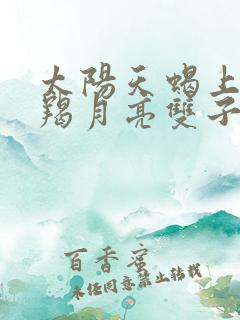 太陽天蝎上
羯月亮雙子
百香蜜
未经同意禁止转载